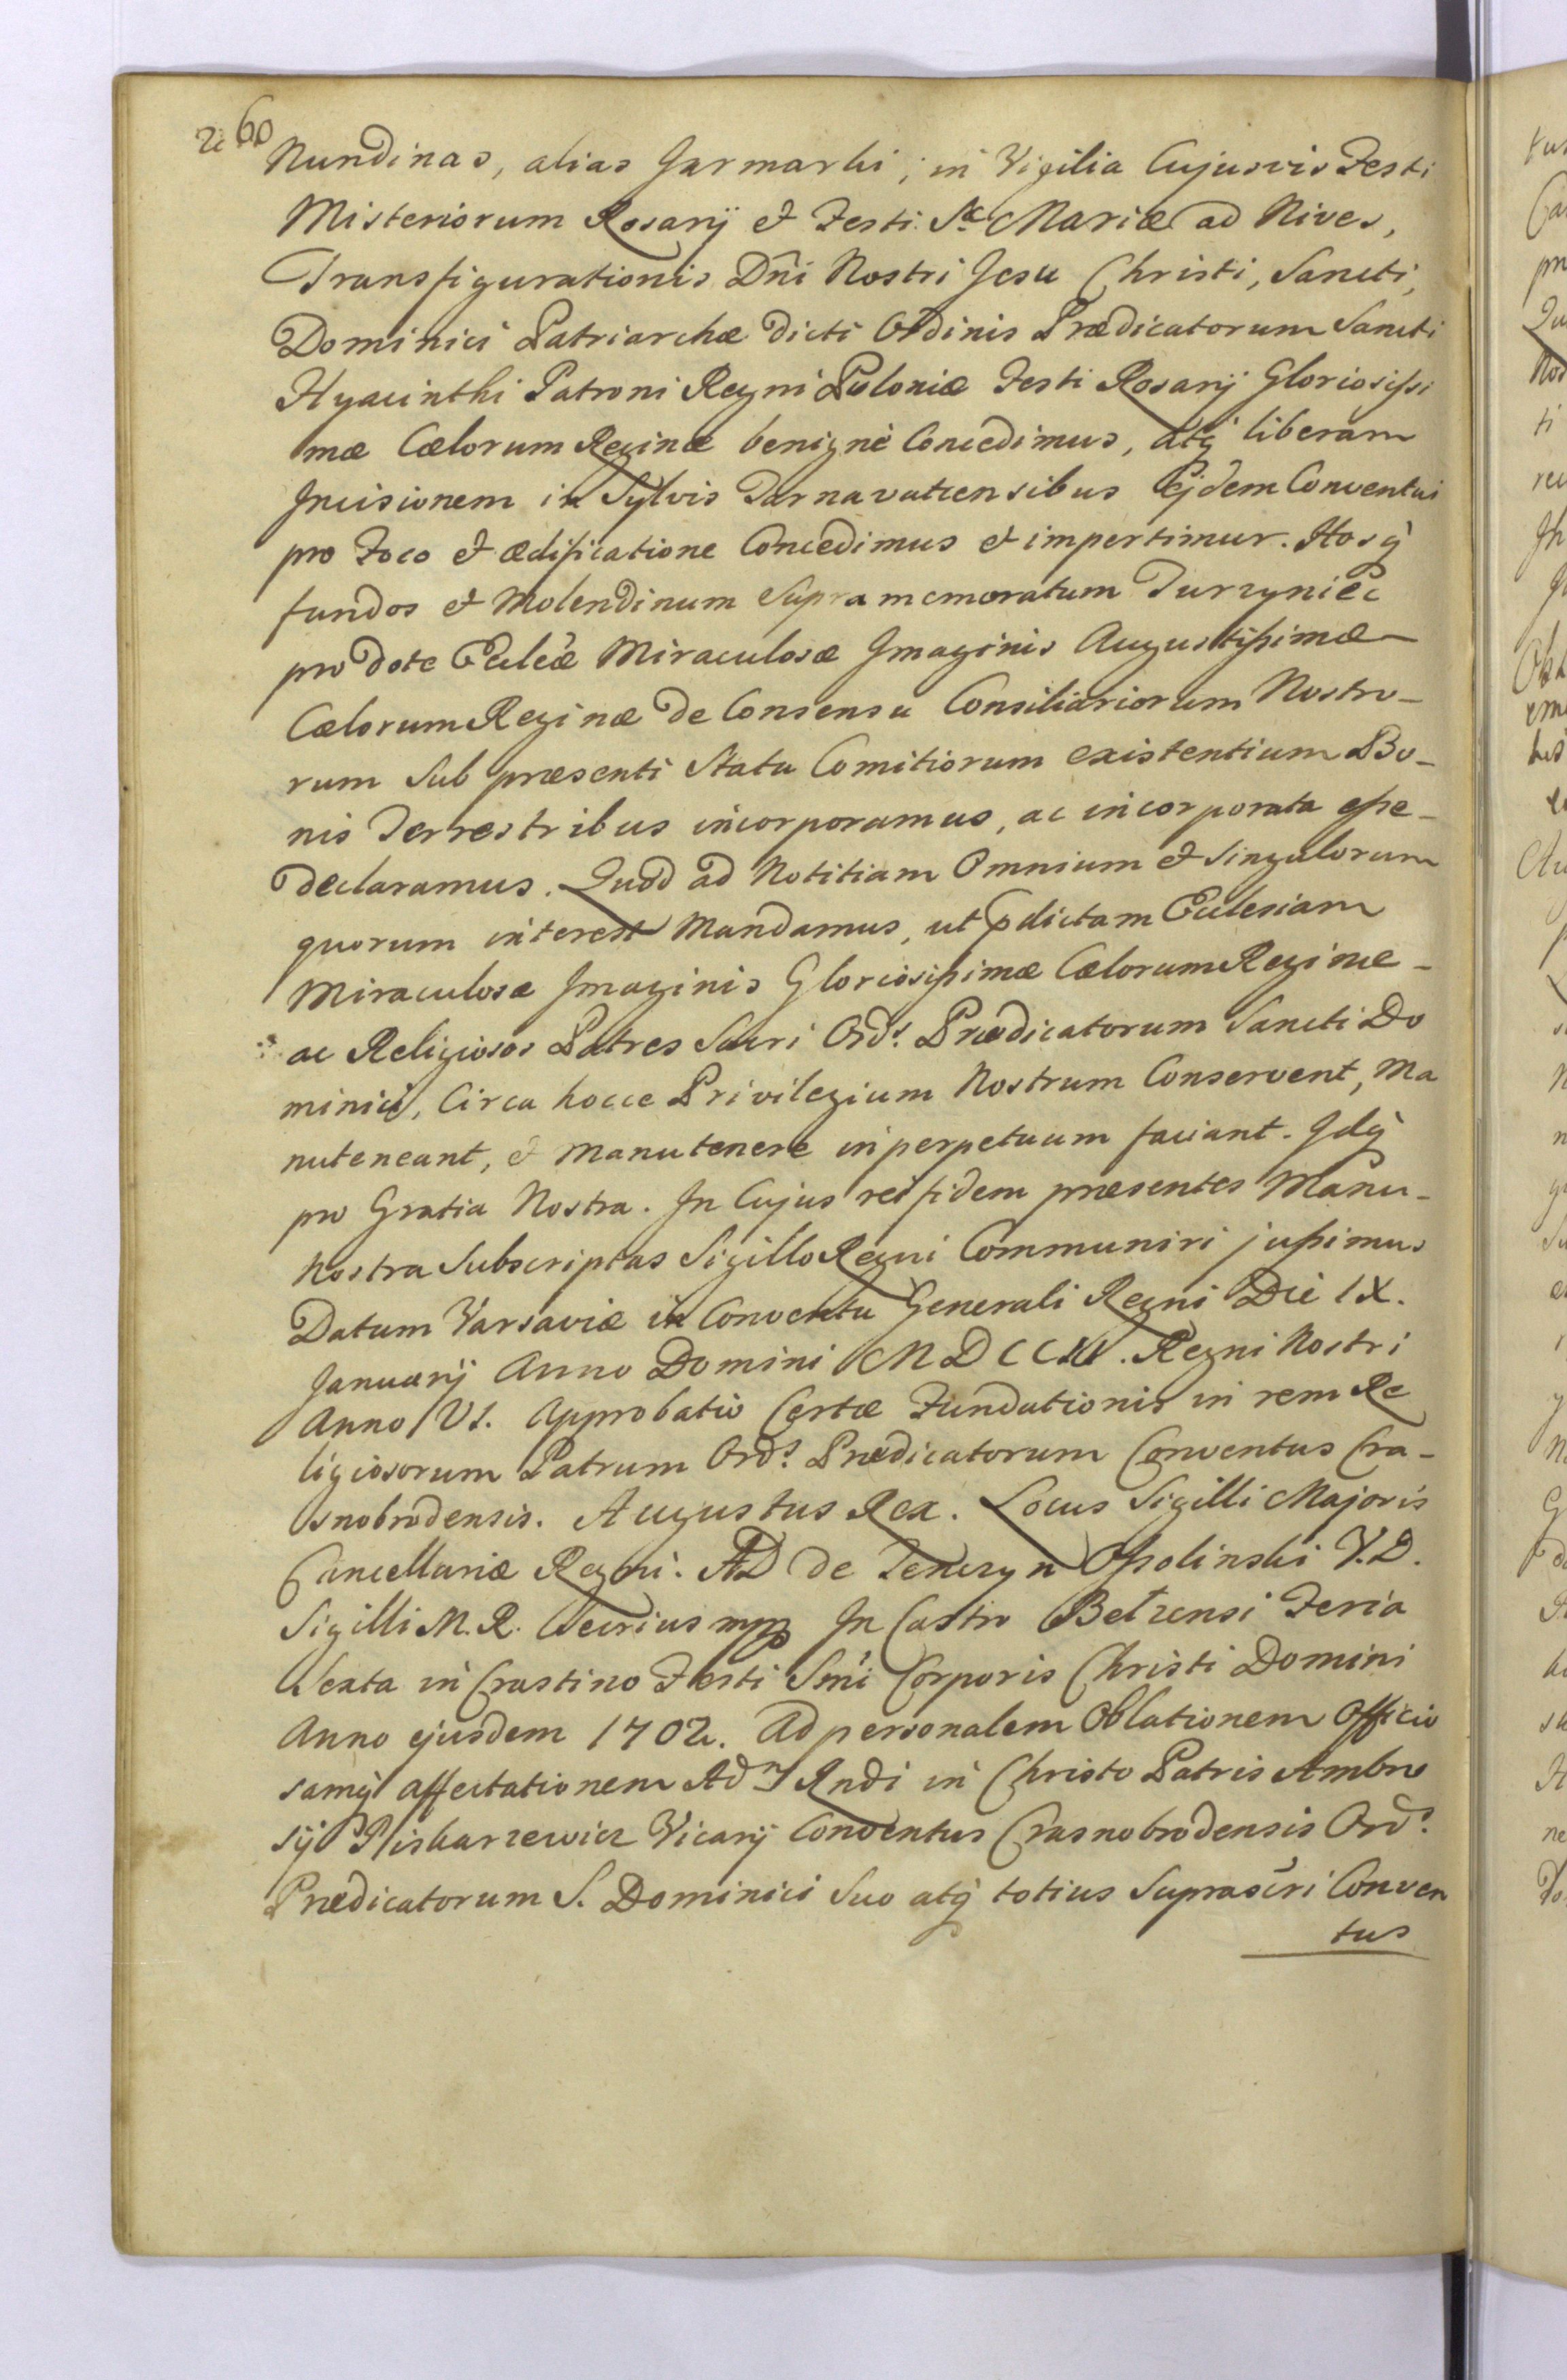 260
Nundinas, alias Jarmarki, in Vigilia Cujusvis Festi
Misteriorum Rosarÿ et Festi Stæ Mariæ ad Nives,
Transfigurationis Dñi Nostri Jesu Christi, Sancti,
Dominici Patriarchæ dicti Ordinis Prædicatorum Sancti
Hyacinthi Patroni Regni Poloniæ Festi Rosarÿ Gloriosissi
mæ Cælorum Reginæ benignè Concedimus, atq́ liberam
Incisionem in Sylvis Tarnavatcensibus Ejdem Conventui
pro Foco et ædificatione Concedimus et impertimur. Hosq́
fundos et Molendinum Supra memoratum Turzyniec
pro dote Eccleæ Miraculosæ Imaginis Augustissimæ
Cælorum Reginæ de Consensu Consiliariorum Nostro-
rum Sub præsenti Statu Comitiorum existentium Bo-
nis Terrestribus incorporamus, ac incorporata esse-
declaramus. Quod ad Notitiam Omnium et Singulorum
quorum interest Mandamus, ut pdictam Ecclesiam
Miraculosæ Imaginis Gloriosissimæ Cælorum Reginæ-
ac Religiosos Patres Sacri Ords Prædicatorum Sancti Do
minici, Circa hocce Privilegium Nostrum Conservent, Ma
nuteneant, et Manutenere in perpetuum faciant. Idq́
pro Gratia Nostra. In Cujus rei fidem præsentes Manu-
Nostra Subscriptas Sigillo Regni Communiri jussimus
Datum Varsaviæ in Conventu Generali Regni Die IX.
Januarÿ Anno Domini MDCCIII. Regni Nostri
Anno VI. Approbatio Certæ Fundationis in rem Re
ligiosorum Patrum Ords Prædicatorum Conventus Cra-
snobrodensis. Augustus Rex. Locus Sigilli Majoris
Cancellariæ Regni. AD de Tenczyn Ossolinski V.D.
Sigilli M.R. Secrius mpp In Castro Belzensi Feria
Sexta in Crastino Festi Smi Corporis Christi Domini
Anno ejusdem 1702. Ad personalem Oblationem Officio
samq́ affectationem Adm Rndi in Christo Patris Ambro
sÿ Pliskarzewicz Vicarÿ Conventus Crasnobrodensis Ords
Prædicatorum S. Dominici Suo atq́ totius Suprascri Conven
tus